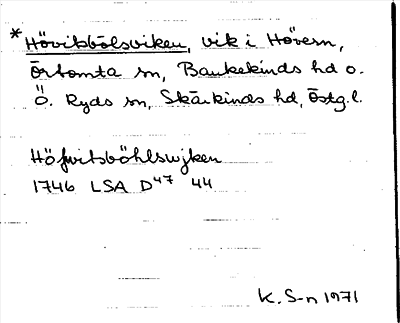 *Hövikbölsviken, vik i Hövern,
Örtomta sn, Bankekinds hd o.
Ö. Ryds sn, Skärkinds hd, Östg.l.
Höfwitsböhlswjken
1746 LSA D47 44
K. S-n 1971